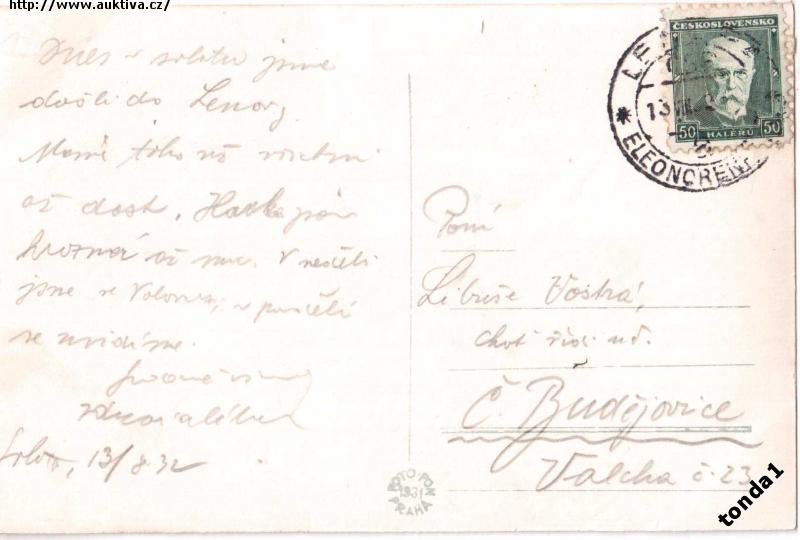 http://www.auktiva.cz/
Dnes v sobotu jsme
došli do Lenory
Máme toho už všichni
až dost.
hrozná až moc. V neděli
jsme ve Volarech, v pondělí
se uvidíme.
13/8 32
ČESKOSLOVENSKO
50 HALÉŘŮ 50
13 VIII
ELEONOREN
Paní
Libuše Vostrá,
choť říd. uč.
Č. Budějovice
Valcha č. 23
FOTO-FON
1931
PRAHA
tonda1